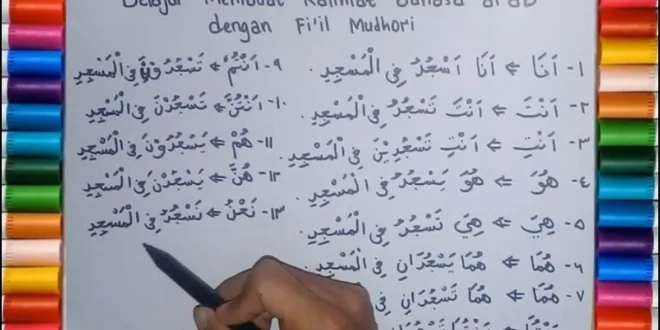 Belajar Membuat Kalimat Bahasa arab
dengan Fi'il Mudhori
١- اَنَا ⇐ اَنَا اَسْجُدُ فِي الْمَسْجِدِ .
٢- اَنْتَ ⇐ اَنْتَ تَسْجُدُ فِي الْمَسْجِدِ .
٣- اَنْتِ ⇐ اَنْتِ تَسْجُدِيْنَ فِي الْمَسْجِدِ .
٤- هُوَ ⇐ هُوَ يَسْجُدُ فِي الْمَسْجِدِ .
٥- هِيَ ⇐ هِيَ تَسْجُدُ فِي الْمَسْجِدِ .
٦- هُمَا ⇐ هُمَا يَسْجُدَانِ فِي الْمَسْجِدِ .
٧- هُمَا ⇐ هُمَا تَسْجُدَانِ فِي
٩- اَنْتُمْ ⇐ تَسْجُدُوْنَ فِي الْمَسْجِدِ
١٠- اَنْتُنَّ ⇐ تَسْجُدْنَ فِي الْمَسْجِدِ
١١- هُمْ ⇐ يَسْجُدُوْنَ فِي الْمَسْجِدِ
١٢- هُنَّ ⇐ يَسْجُدْنَ فِي الْمَسْجِدِ
١٣- نَحْنُ ⇐ نَسْجُدُ فِي الْمَسْجِدِ